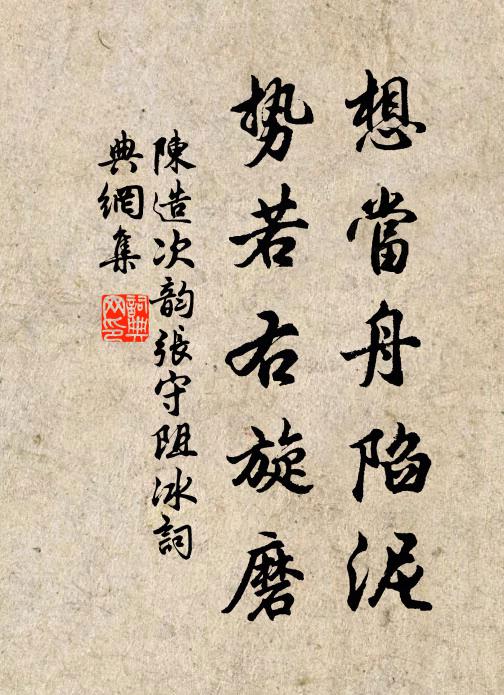 想當舟陷泥
势若右旋磨
陳造次韵張守阻冰詞
典網集
詞典网印